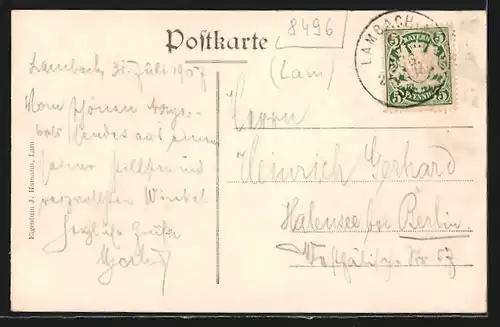 8496
Postkarte
LAMBACH
BAYERN
5 5
PFENNIG
5 5
(Lam)
Lambach, 31. Juli 1907
Vom schönen
aus einem
seiner stillsten und
reizvollsten Winkel
herzliche Grüße
Herrn
Heinrich Gerhard
Halensee bei Berlin
Westfälische Str 57
Eigentum J. Hamann, Lam